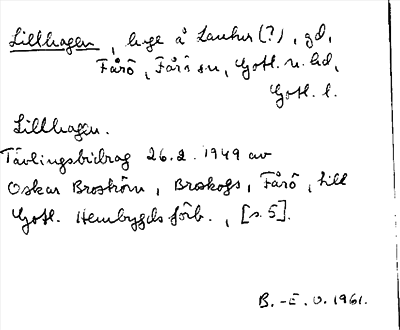 Lillhagen, hage å Lauter (?), gd,
Fårö, Fårö sn, Gotl. n. hd,
Gotl. l.
Lillhagen.
Tävlingsbidrag 26.2.1949 av
Oskar Broström, Broskogs, Fårö, till
Gotl. Hembygdsförb., [s. 5].
B.-E. O. 1961.